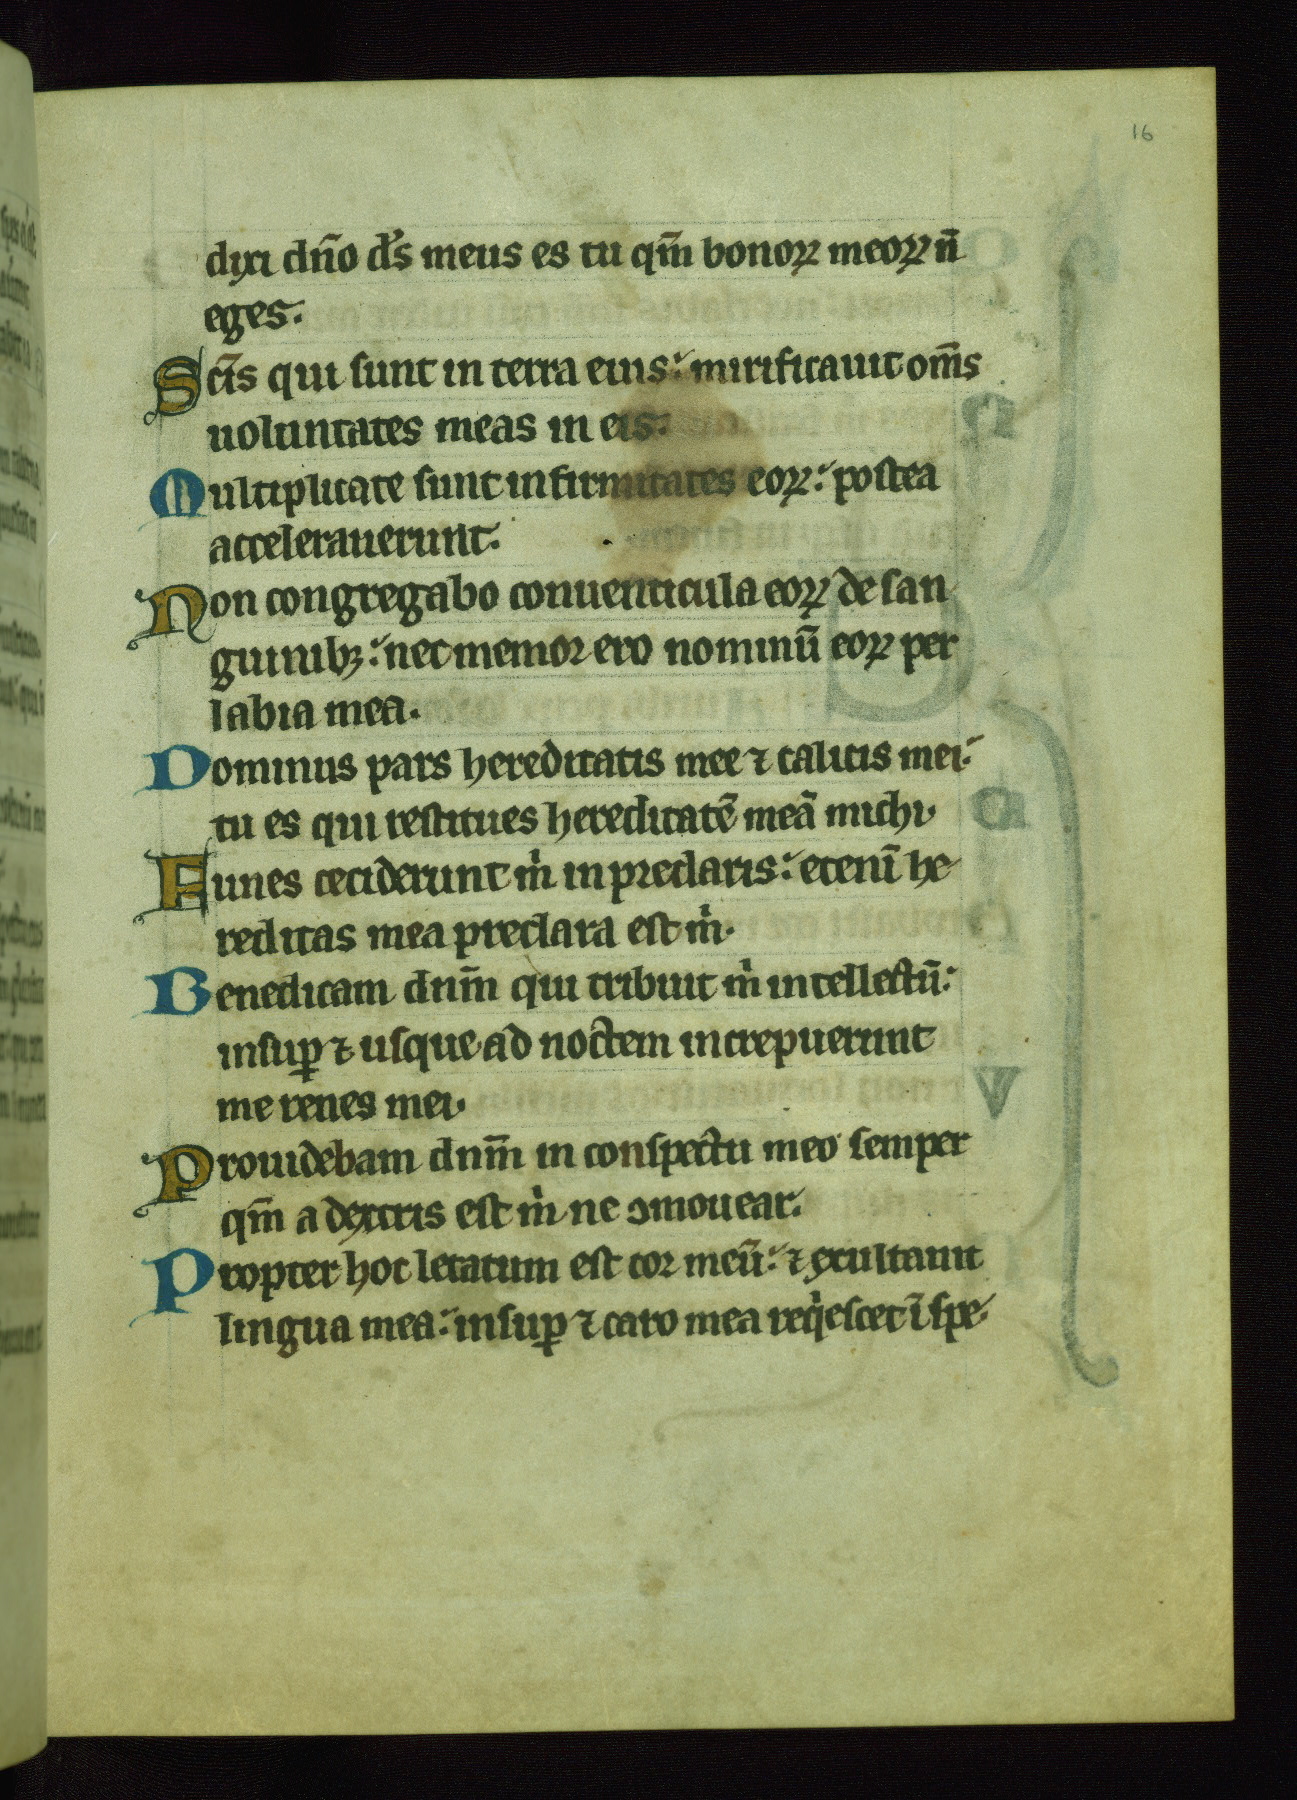 16
dixi dn̄o d̄s meus es tu qm̄ bonoꝝ meoꝝ n̄
eges.
Sc̄is qui sunt in terra eius: mirificauit om̄s
uoluntates meas in eis.
Multiplicate sunt infirmitates eoꝝ: postea
accelerauerunt.
Non congregabo conuenticula eoꝝ de san
guinibꝫ: nec memor ero nominū eoꝝ per
labia mea.
Dominus pars hereditatis mee ⁊ calicis mei:
tu es qui restitues hereditatē meā michi.
Funes ceciderunt m̍ in preclaris: etenī he
reditas mea preclara est m̍.
Benedicam dnm̄ qui tribuit m̍ intellectū:
insuꝑ ⁊ usque ad noctem increpuerunt
me renes mei.
Prouidebam dnm̄ in conspectu meo semper
qm̄ a dextris est m̍ ne ↄmouear.
Propter hoc letatum est cor meū: ⁊ exultauit
lingua mea: insuꝑ ⁊ caro mea reqͥescet ī spe.